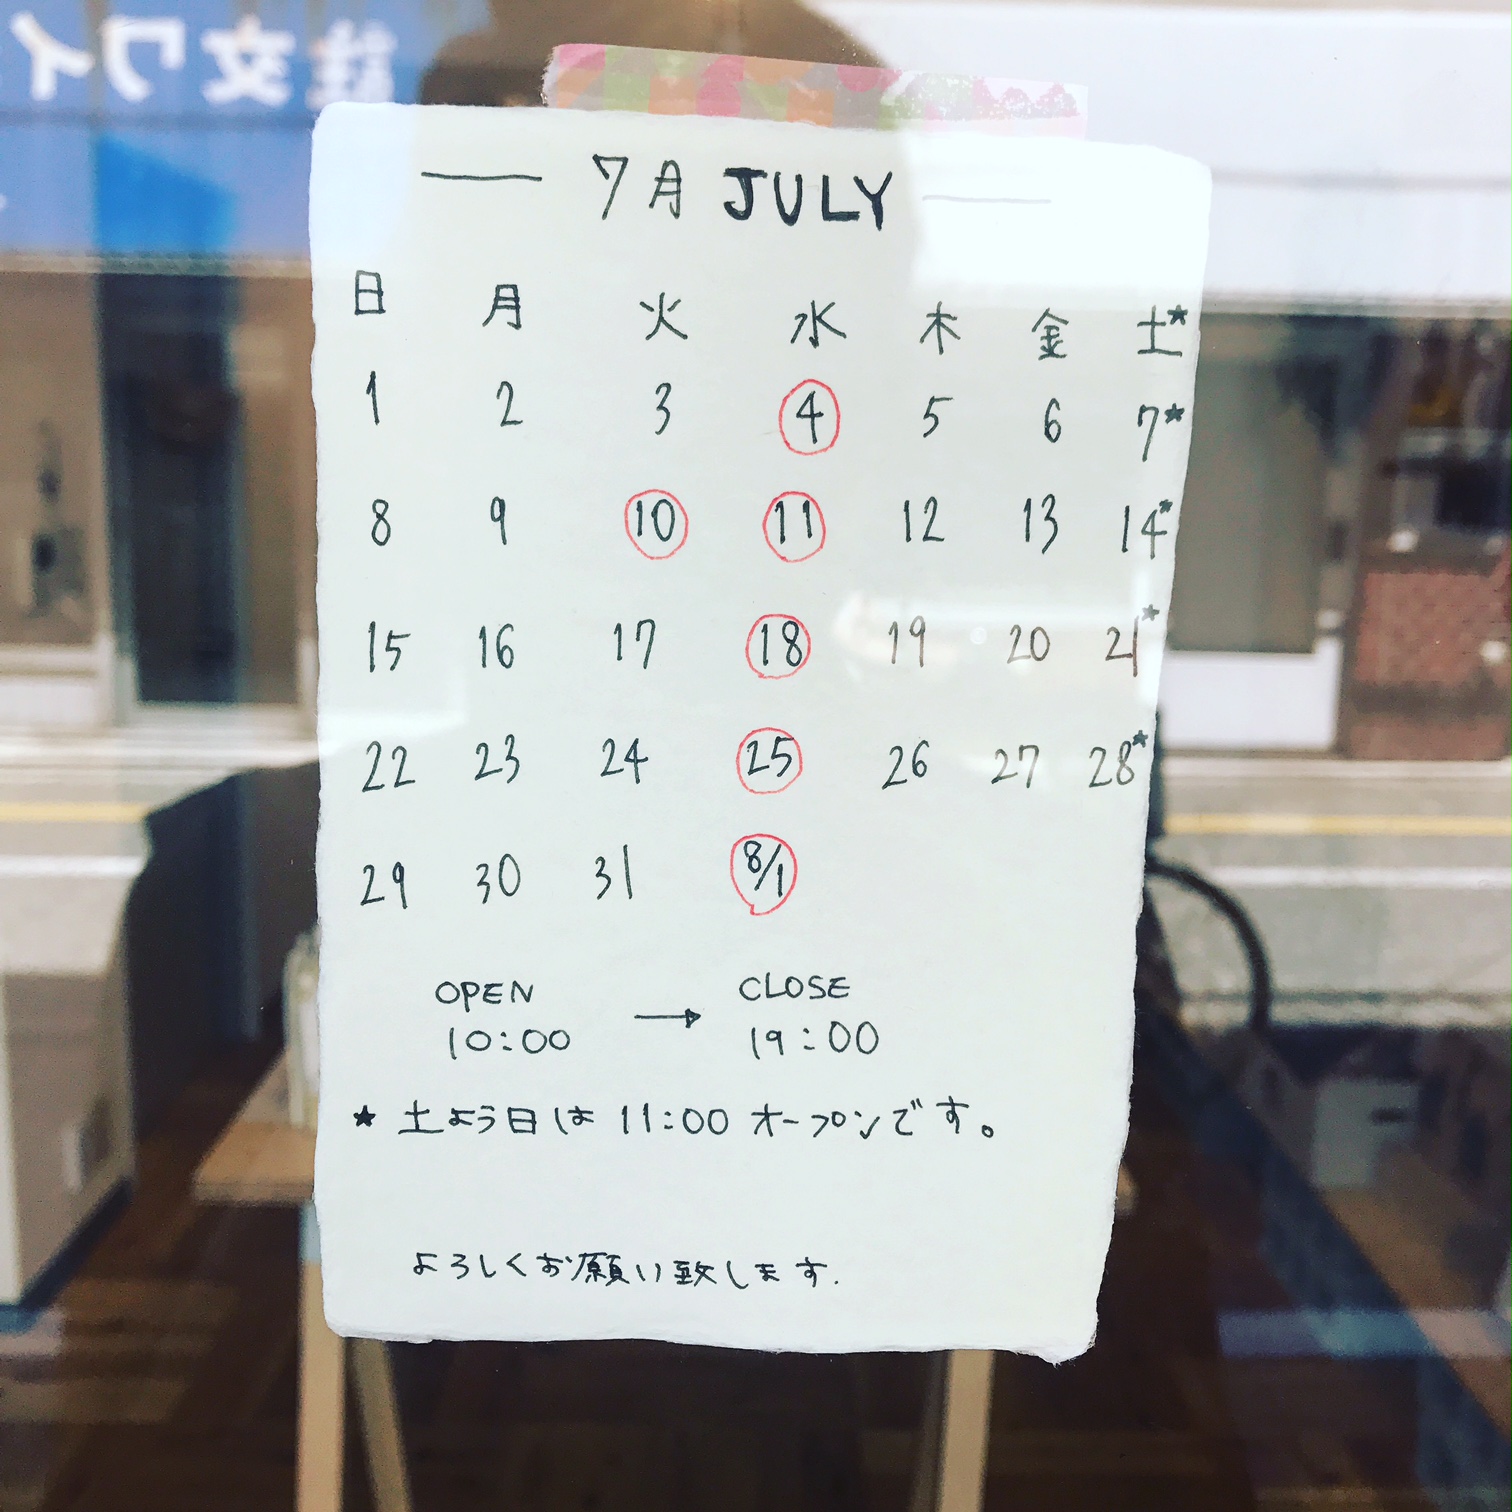 註文ワイ
7月 JULY
日 月 火 水 木 金 土★
1 2 3 4 5 6 7★
8 9 10 11 12 13 14★
15 16 17 18 19 20 21★
22 23 24 25 26 27 28★
29 30 31 8/1
OPEN → CLOSE
10:00 19:00
★ 土よう日は 11:00 オープンです。
よろしくお願い致します.